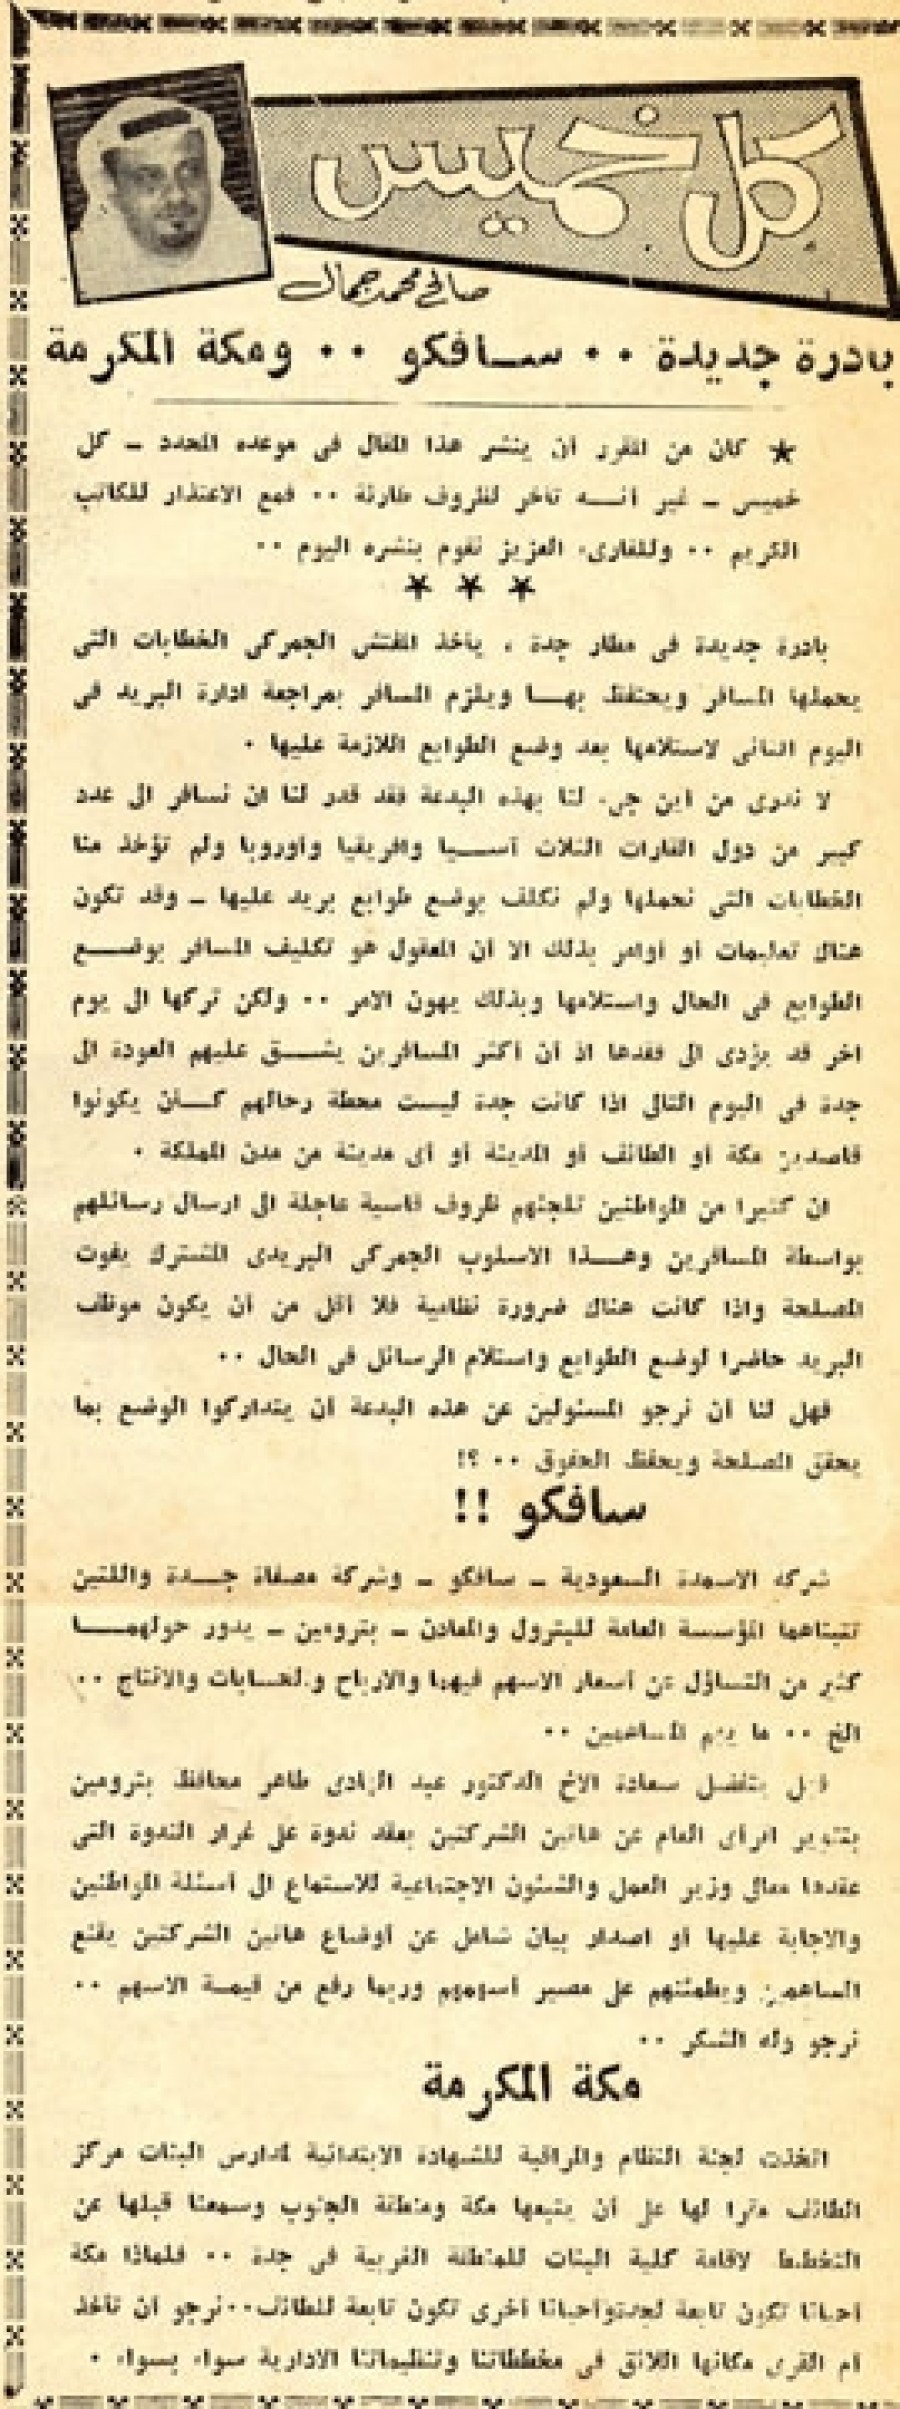 كل خميس
صالح محمد جمال
بادرة جديدة ٠٠ سافكو ٠٠ ومكة المكرمة
★ كان من المقرر أن ينشر هذا المقال فى موعده المحدد ــ كل
خميس ــ غير أنه تأخر لظروف طارئة ٠٠ فمع الاعتذار للكاتب
الكريم ٠٠ وللقارىء العزيز نقوم بنشره اليوم ٠٠
★ ★ ★
بادرة جديدة فى مطار جدة ، يأخذ المفتش الجمركى الخطابات التى
يحملها المسافر ويحتفظ بها ويلزم المسافر بمراجعة ادارة البريد فى
اليوم الثانى لاستلامها بعد وضع الطوابع اللازمة عليها ٠
لا ندرى من اين جىء لنا بهذه البدعة فقد قدر لنا ان نسافر الى عدد
كبير من دول القارات الثلاث آسيا وافريقيا وأوروبا ولم تؤخذ منا
الخطابات التى نحملها ولم نكلف بوضع طوابع بريد عليها ــ وقد تكون
هناك تعليمات أو أوامر بذلك الا أن المعقول هو تكليف المسافر بوضع
الطوابع فى الحال واستلامها وبذلك يهون الامر ٠٠ ولكن تركها الى يوم
آخر قد يؤدى الى فقدها اذ أن أكثر المسافرين يشق عليهم العودة الى
جدة فى اليوم التالى اذا كانت جدة ليست محطة رحالهم كأن يكونوا
قاصدين مكة أو الطائف أو المدينة أو أى مدينة من مدن المملكة ٠
ان كثيرا من المواطنين تلجئهم ظروف قاسية عاجلة الى ارسال رسائلهم
بواسطة المسافرين وهذا الاسلوب الجمركى البريدى المشترك يفوت
المصلحة واذا كانت هناك ضرورة نظامية فلا أقل من أن يكون موظف
البريد حاضرا لوضع الطوابع واستلام الرسائل فى الحال ٠٠
فهل لنا أن نرجو المسئولين عن هذه البدعة أن يتداركوا الوضع بما
يحقق المصلحة ويحفظ الحقوق ٠٠ ؟!
سافكو !!
شركة الاسمدة السعودية ــ سافكو ــ وشركة مصفاة جدة واللتين
تتبناهما المؤسسة العامة للبترول والمعادن ــ بترومين ــ يدور حولهما
كثير من التساؤل عن أسعار الاسهم فيهما والارباح والحسابات والانتاج ٠٠
الخ ٠٠ ما يهم المساهمين ٠٠
فهل يتفضل سعادة الاخ الدكتور عبد الهادى طاهر محافظ بترومين
بتنوير الرأى العام عن هاتين الشركتين بعقد ندوة على غرار الندوة التى
عقدها معالى وزير العمل والشئون الاجتماعية للاستماع الى أسئلة المواطنين
والاجابة عليها أو اصدار بيان شامل عن أوضاع هاتين الشركتين يقنع
المساهمين ويطمئنهم على مصير أسهمهم وربما رفع من قيمة الاسهم ٠٠
نرجو وله الشكر ٠٠
مكة المكرمة
اتخذت لجنة النظام والمراقبة للشهادة الابتدائية لمدارس البنات مركز
الطائف مقرا لها على أن يتبعها مكة ومنطقة الجنوب وسمعنا قبلها عن
التخطيط لاقامة كلية البنات للمنطقة الغربية فى جدة ٠٠ فلماذا مكة
احيانا تكون تابعة لجدة وأحيانا أخرى تكون تابعة للطائف ٠٠ نرجو أن تأخذ
أم القرى مكانها اللائق فى مخططاتنا وتنظيماتنا الادارية سواء بسواء ٠